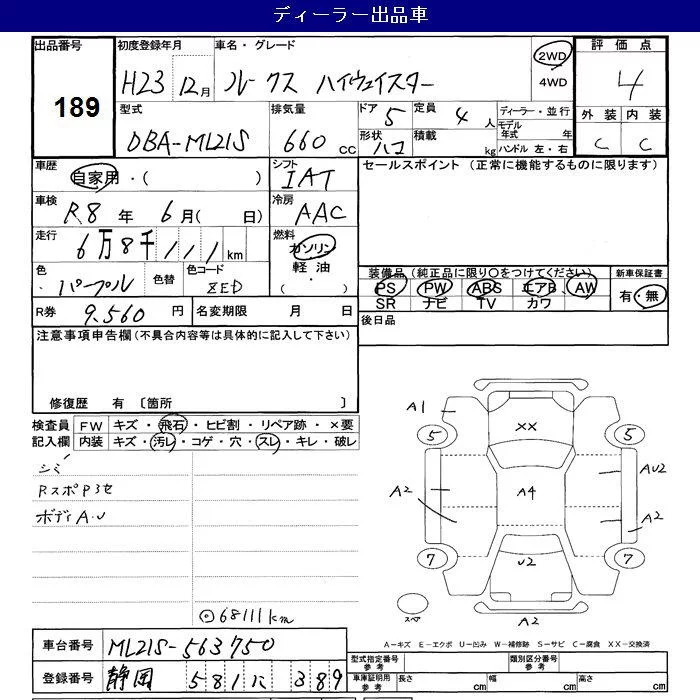 ディーラー出品車
出品番号 初度登録年月 車名・グレード 評価点
189 H23 12月 ルークス ハイウェイスター 2WD 4WD 4
型式 排気量 ドア 5 定員 4人 ディーラー・並行 外装 内装
DBA-ML21S 660 CC 形状 ハコ 積載 kg モデル年式 年 ハンドル 左・右 C C
車歴 自家用・( ) シフト IAT セールスポイント (正常に機能するものに限ります)
車検 R.8年 6月( 日) 冷房 AAC
走行 6万8千111km 燃料 ガソリン
軽油・( )
色 パープル 色替 色コード
装備品(純正品に限り○をつけてください) 新車保証書
PS PW ABS エアB AW 有・無
SR ナビ TV カワ
R券 9.560円 名変期限 月 日 後日品
注意事項申告欄(不具合内容等は具体的に記入して下さい)
修復歴 有 〔箇所 〕
検査員 FW キズ・飛石・ヒビ割・リペア跡・×要
記入欄 内装 キズ・汚レ・コゲ・穴・スレ・キレ・破レ
シミ
RスポPヨセ
ボディA.U
◎68111km
A1 XX
5 5
AU2
A2 A4 A2
7 U2 7
スペア A2
A-キズ E-エクボ U-凹み W-補修跡 S-サビ C-腐食 XX-交換済
車台番号 ML21S-563750 型式指定番号 参考 類別区分番号 参考
登録番号 静岡 581 に 389 車庫証明用 参考 長さ cm 幅 cm 高さ cm